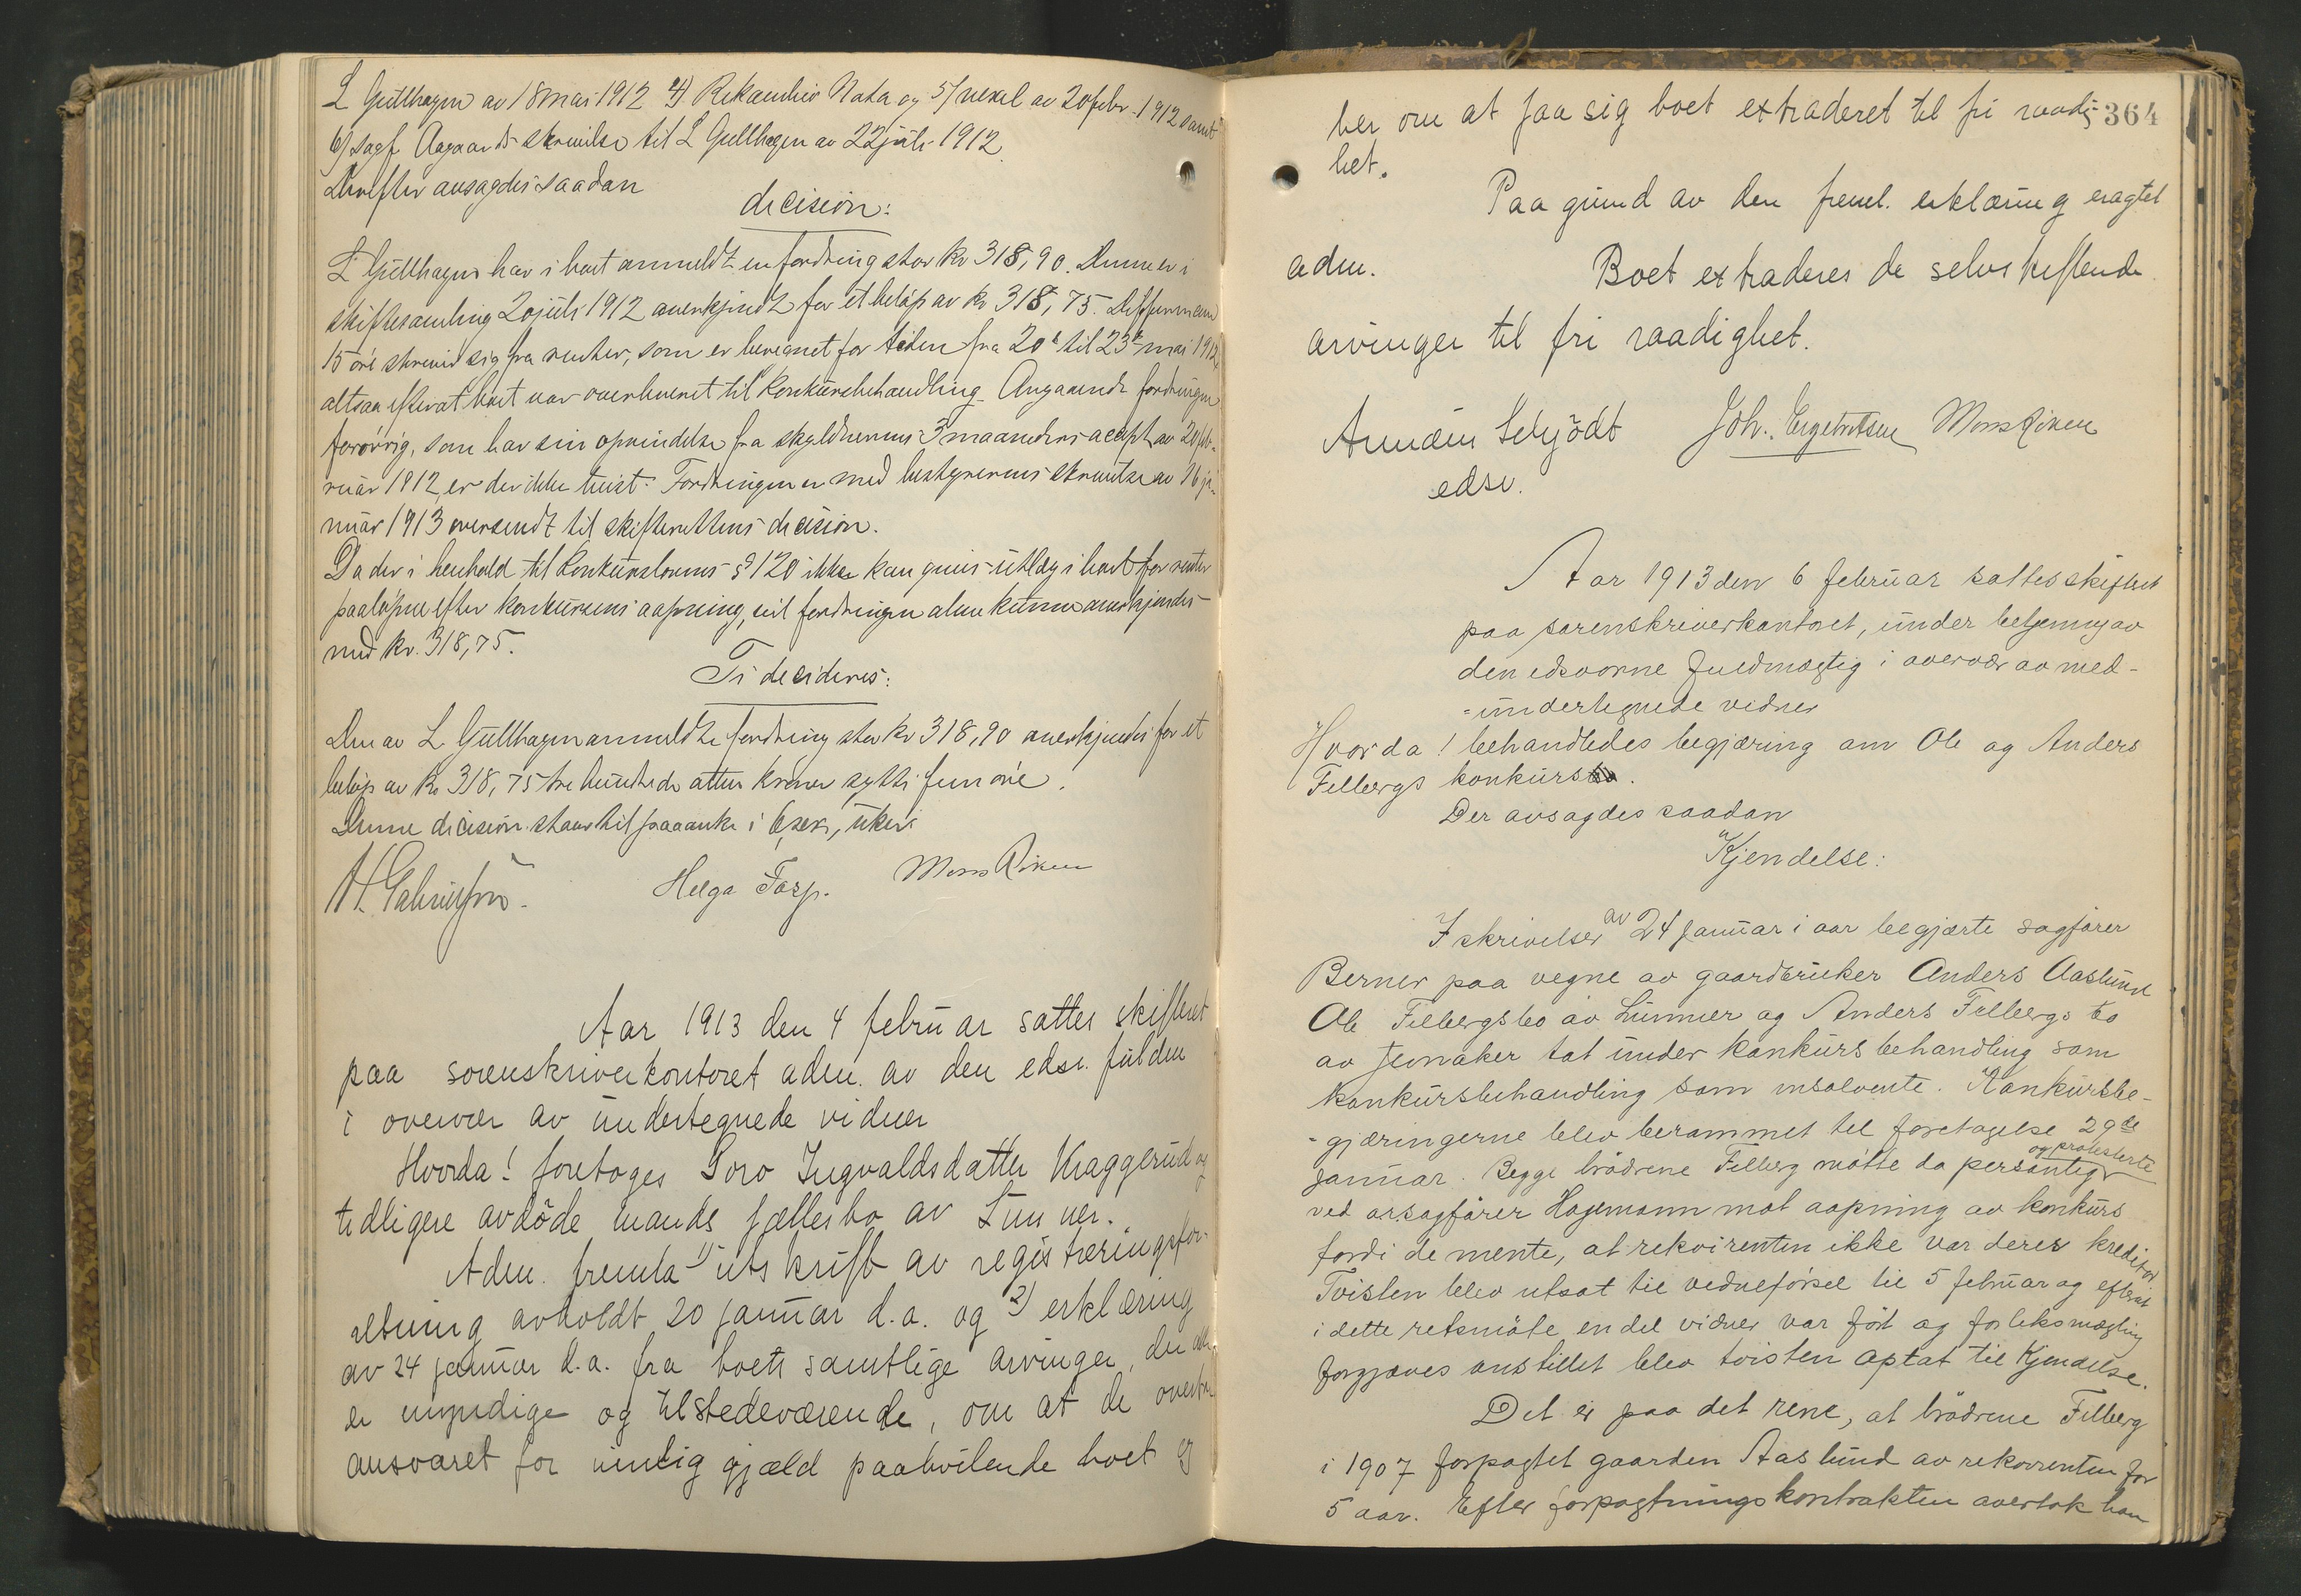 L Gullhagen av 18 mai 1912 4) Rekambio Nota og 5/ veksel av 20 febr. 1912 samt
6/ sagf. Aagaards skrivelse til L Gullhagen av 22 juli 1912.
Derefter avsagdes saadan
decision:
L Gullhagen har i boet anmeldt en fordring stor kr 318,90. Denne er i
skiftesamling 20 juli 1912 anerkjendt for et beløp av kr 318,75. Differansen
15 øre skriver sig fra renter, som er beregnet for tiden fra 20de til 23de mai 1912
altsaa efterat boet var overleveret til konkursbehandling. Angaaende fordringen
forøvrig, som har sin oprindelse fra skyldnerens 3 maaneders accept av 20 feb-
ruar 1912, er der ikke tvist. Fordringen er med bestyrerens skrivelse av 16 ja-
nuar 1913 oversendt til skifterettens decision.
Da der i henhold til konkurslovens § 120 ikke kan gives utlæg i boet for renter
paaløpne efter konkursens aapning, vil fordringen alene kunne anerkjendes
med kr. 318,75.
Ti decideres:
Den av L Gullhagen anmeldte fordring stor kr 318,90 anerkjendes for et
beløp av kr 318,75 tre hundrede atten kroner sytti fem øre.
Denne decision staar til paaanke i 6, seks, uker.
Helga Torp. Mons Riken
Aar 1913 den 4 februar sattes skifteret
paa sorenskriverkontoret adm. av den edsv. fuldm
i overvær av undertegnede vidner
Hvorda! foretoges Goro Ingvaldsdatter Kraggerud og
tidligere avdöde mands fællesbo av Lunner.
Adm. fremla 1) utskrift av registreringsfor-
retning avholdt 20 januar d.a. og 2) erklæring
av 24 januar d.a. fra boets samtlige arvinger, der alle
er myndige og tilstedeværende, om at de overtar
ansvaret for mulig gjæld paahvilende boet og
ber om at faa sig boet extraderet til fri raadig- 364
het.
Paa grund av den freml. erklæring eragtet
adm.
Boet extraderes de selvskiftende
arvinger til fri raadighet.
Amudin Schjödt Joh. Engebretsen Mons Riken
edsv.
Aar 1913 den 6 februar sattes skifteret
paa sorenskriverkontoret, under betjening av
den edsvorne fuldmægtig i overvær av med-
-undertegnede vidner
Hvorda! behandledes begjæring om Ole og Anders
Felbergs konkurs.
Der avsagdes saadan
Kjendelse:
I skrivelser av 24 januar i aar begjærte sagfører
Berner paa vegne av gaardbruker Anders Aaslund
Ole Felbergs bo av Lunner og Anders Felbergs bo
av Jevnaker tat under konkursbehandling som
konkursbehandling som insolvente. Konkursbe-
-gjæringerne blev berammet til foretagelse 29de
januar. Begge brödrene Felberg mötte da personlig og protesterte
ved orsagfører Hagemann mot aapning av konkurs
fordi de mente, at rekvirenten ikke var deres kreditor.
Tvisten blev utsat til vidneførsel til 5 februar og efterat
i dette retsmöte en del vidner var fört og forliksmægling
forgjæves anstillet blev tvisten optat til Kjendelse.
Det er paa det rene, at brödrene Felberg
i 1907 forpagtet gaarden Aaslund av rekvirenten for
5 aar. Efter forpagtningskontrakten overtok han